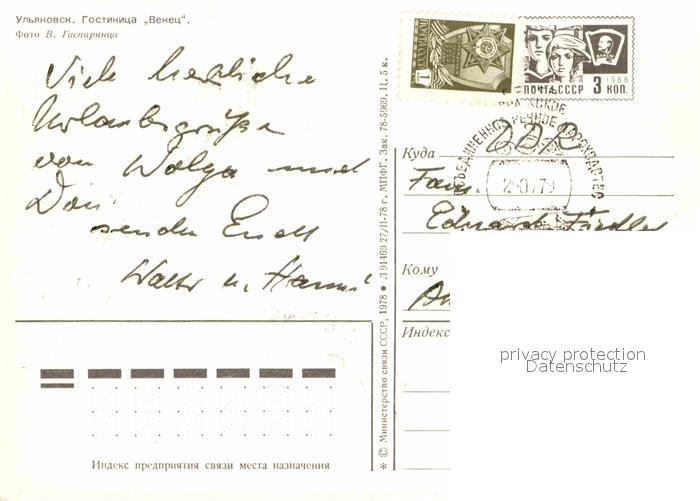 Ульяновск. Гостиница „Венец".
Фото В. Гаспарянца
Viele herzliche
Urlaubsgrüße
von Wolga und
Don
senden Euch
Walter u. Hanni
Индекс предприятия связи места назначения
* © Министерство связи СССР, 1978 ● Л 91469 27/II-78 г. МПФГ. Зак. 78-5969. Ц. 5 к.
1
1966
ПОЧТА СССР 3 КОП.
ОБЪЕДИНЕННОЕ РЕЧНОЕ ПАРОХОДСТВО
79
Куда DDR
Fam.
Eduard Fiedler
Кому
Индекс
privacy protection
Datenschutz